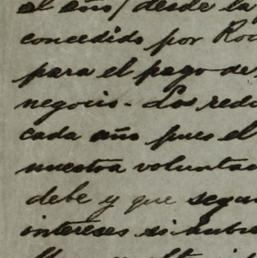 al año/ desde la
concedido por Ro
para el pago de
negocio - Los redu
cada año pues el
nuestra voluntad
debe y que segu
intereses si hubie